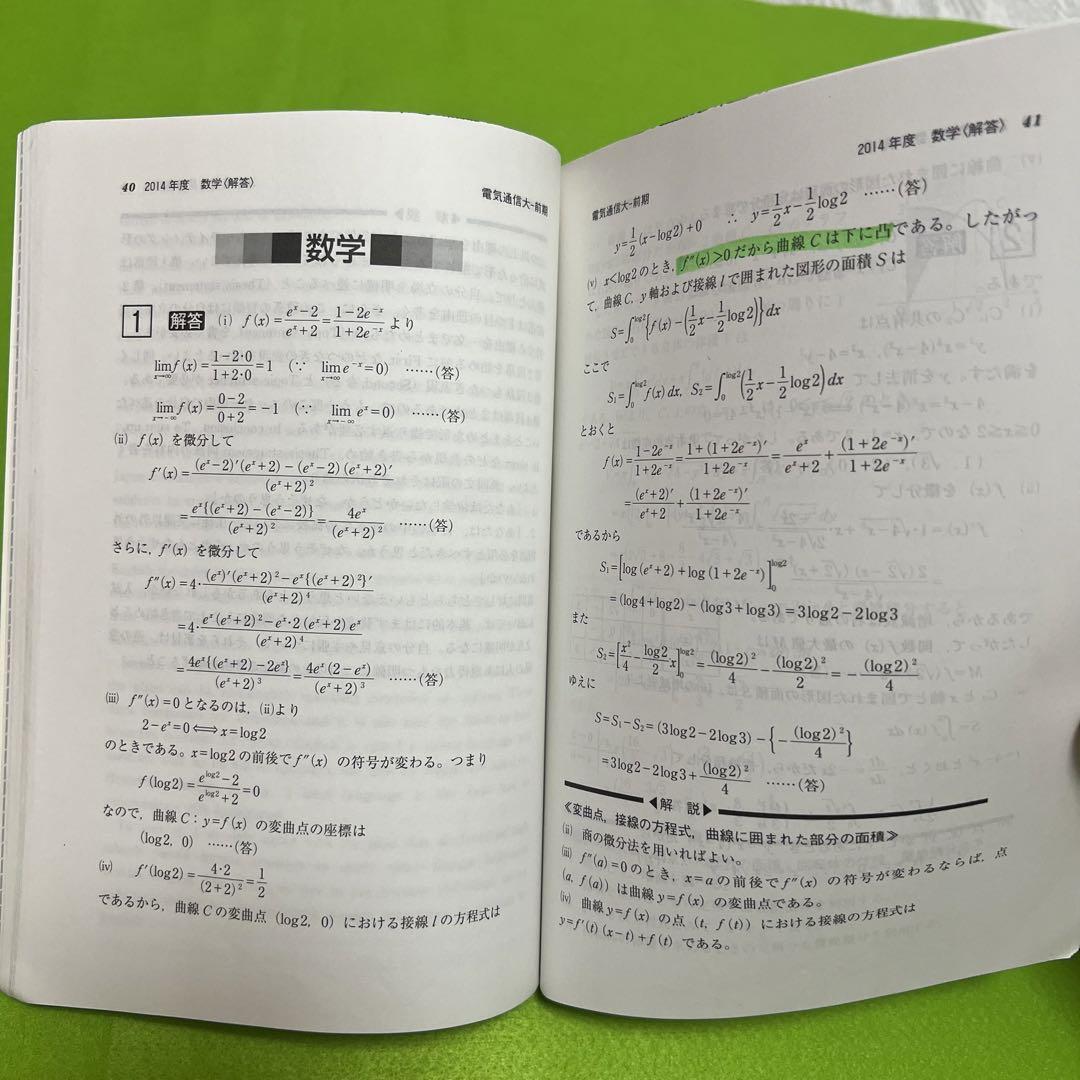 40 2014年度 数学〈解答〉
電気通信大-前期
数学
1 解答 (i) f(x)=\frac{e^x-2}{e^x+2}=\frac{1-2e^{-x}}{1+2e^{-x}}より
\lim_{x→∞}f(x)=\frac{1-2・0}{1+2・0}=1 (∵ \lim_{x→∞}e^{-x}=0) ……(答)
\lim_{x→-∞}f(x)=\frac{0-2}{0+2}=-1 (∵ \lim_{x→-∞}e^x=0) ……(答)
(ii) f(x)を微分して
f'(x)=\frac{(e^x-2)'(e^x+2)-(e^x-2)(e^x+2)'}{(e^x+2)^2}
=\frac{e^x{(e^x+2)-(e^x-2)}}{(e^x+2)^2}=\frac{4e^x}{(e^x+2)^2} ……(答)
さらに, f'(x)を微分して
f''(x)=4・\frac{(e^x)'(e^x+2)^2-e^x{(e^x+2)^2}'}{(e^x+2)^4}
=4・\frac{e^x(e^x+2)^2-e^x・2(e^x+2)e^x}{(e^x+2)^4}
=\frac{4e^x{(e^x+2)-2e^x}}{(e^x+2)^3}=\frac{4e^x(2-e^x)}{(e^x+2)^3} ……(答)
(iii) f''(x)=0となるのは, (ii)より
2-e^x=0⟺x=log2
のときである。x=log2の前後でf''(x)の符号が変わる。つまり
f(log2)=\frac{e^{log2}-2}{e^{log2}+2}=0
なので, 曲線C:y=f(x)の変曲点の座標は
(log2, 0) ……(答)
(iv) f'(log2)=\frac{4・2}{(2+2)^2}=\frac{1}{2}
であるから, 曲線Cの変曲点(log2, 0)における接線lの方程式は
2014年度 数学〈解答〉 41
電気通信大-前期
y=\frac{1}{2}(x-log2)+0 ∴ y=\frac{1}{2}x-\frac{1}{2}log2 ……(答)
(v) x<log2のとき, f''(x)>0だから曲線Cは下に凸である。したがっ
て, 曲線C, y軸および接線lで囲まれた図形の面積Sは
S=∫_0^{log2}{f(x)-(\frac{1}{2}x-\frac{1}{2}log2)}dx
ここで
S_1=∫_0^{log2}f(x)dx, S_2=∫_0^{log2}(\frac{1}{2}x-\frac{1}{2}log2)dx
とおくと
f(x)=\frac{1-2e^{-x}}{1+2e^{-x}}=\frac{1+(1+2e^{-x})'}{1+2e^{-x}}=\frac{e^x}{e^x+2}+\frac{(1+2e^{-x})'}{1+2e^{-x}}
=\frac{(e^x+2)'}{e^x+2}+\frac{(1+2e^{-x})'}{1+2e^{-x}}
であるから
S_1=[log(e^x+2)+log(1+2e^{-x})]_0^{log2}
=(log4+log2)-(log3+log3)=3log2-2log3
また
S_2=[\frac{x^2}{4}-\frac{log2}{2}x]_0^{log2}=\frac{(log2)^2}{4}-\frac{(log2)^2}{2}=-\frac{(log2)^2}{4}
ゆえに
S=S_1-S_2=(3log2-2log3)-{-\frac{(log2)^2}{4}}
=3log2-2log3+\frac{(log2)^2}{4} ……(答)
◀解 説▶
≪変曲点, 接線の方程式, 曲線に囲まれた部分の面積≫
(ii) 商の微分法を用いればよい。
(iii) f''(a)=0のとき, x=aの前後でf''(x)の符号が変わるならば, 点
(a, f(a))は曲線y=f(x)の変曲点である。
(iv) 曲線y=f(x)の点(t, f(t))における接線の方程式は
y=f'(t)(x-t)+f(t)である。